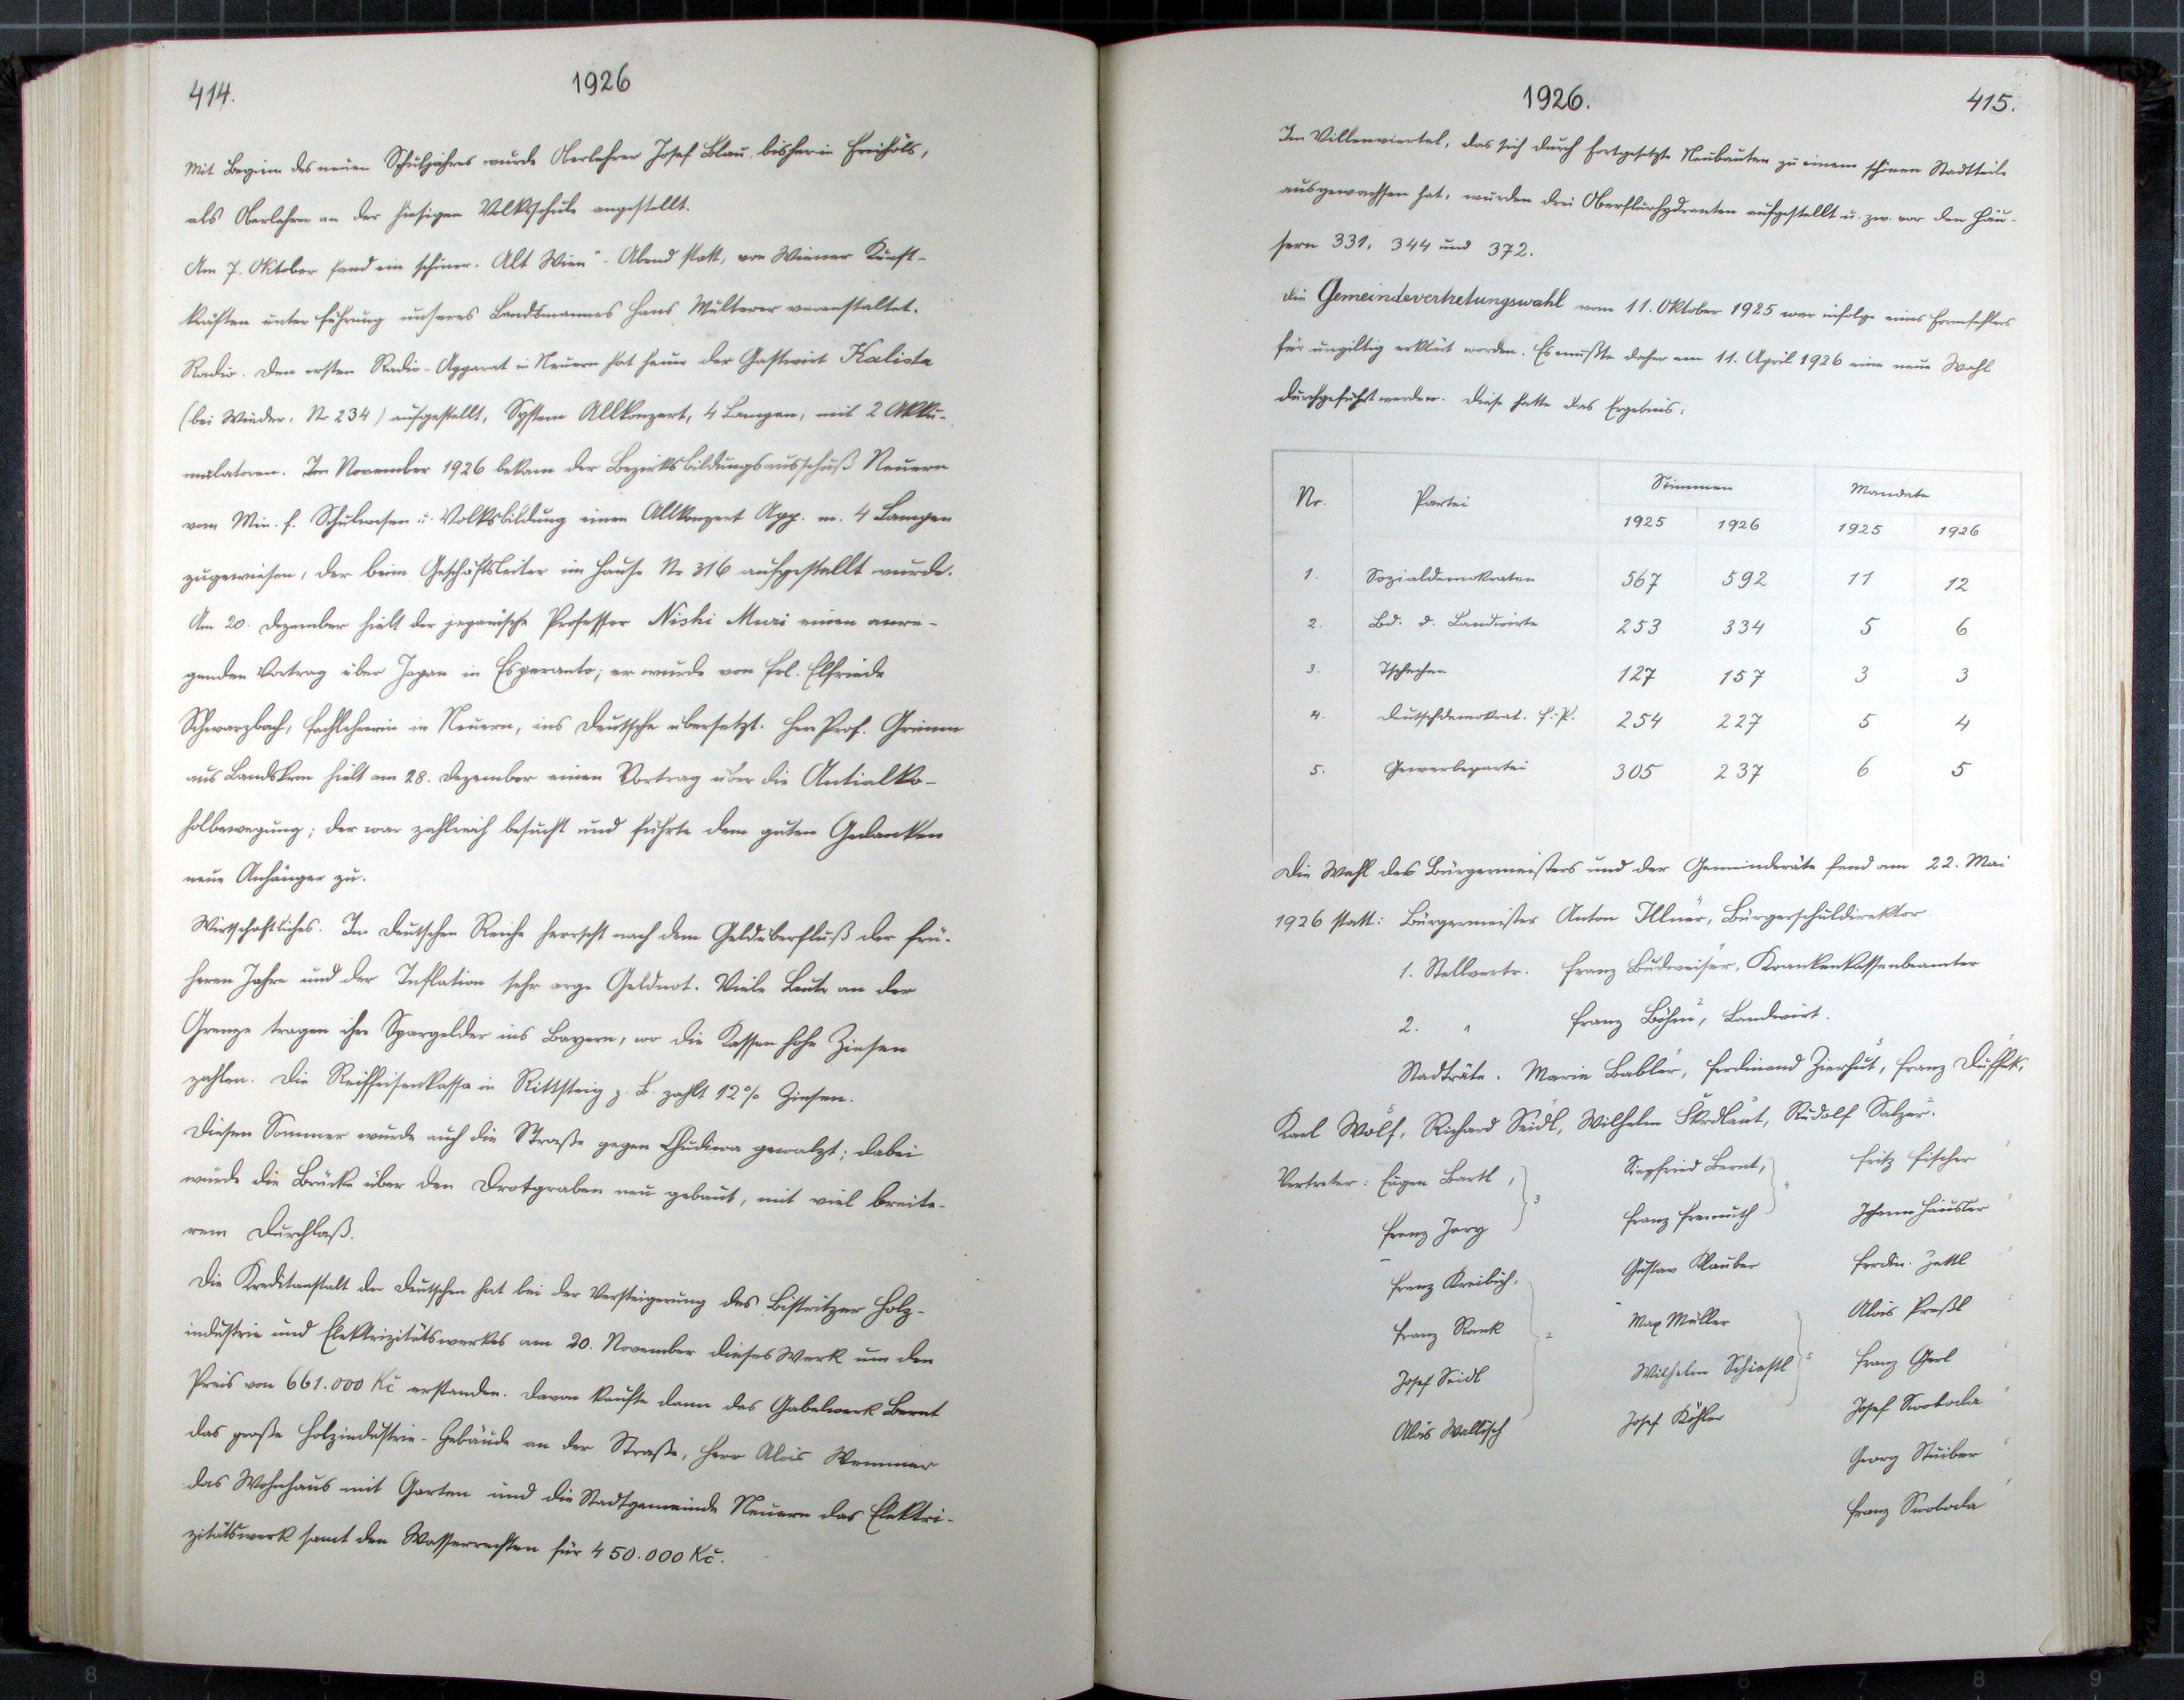 414.
1926
Mit Beginn des neuen Schuljahres wurde Oberlehrer Josef Blau, bisher in Freihöls,
als Oberlehrer an der hiesigen Volksschule angestellt.
Am 7. Oktober fand ein schöner „Alt Wien"-Abend statt, von Wiener Kunst-
kräften unter Führung unseres Landsmannes Hans Multerer veranstaltet.
Radio. Den ersten Radio-Apparat in Neuern hat heuer der Gastwirt Kalista
(bei Wieder, Nr 234) aufgestellt, System Allkonzert, 4 Lampen, mit 2 Akku-
mulatoren. Im November 1926 bekam der Bezirksbildungsausschuß Neuern
vom Min. f. Schulwesen u. Volksbildung einen Allkonzert App. m. 4 Lampen
zugewiesen, der beim Geschäftsleiter im Hause Nr 316 aufgestellt wurde.
Am 20. Dezember hielt der japanische Professor Nishi Muri einen anre-
genden Vortrag über Japan in Esperanto; er wurde von Frl. Elfriede
Schwarzbach, Fachlehrerin in Neuern, ins Deutsche übersetzt. Herr Prof. Grimm
aus Landskron hielt am 28. Dezember einen Vortrag über die Antialko-
holbewegung; der war zahlreich besucht und führte dem guten Gedanken
neue Anhänger zu.
Wirtschaftliches. Im Deutschen Reiche herrscht nach dem Geldüberfluß der frü-
heren Jahre und der Inflation sehr arge Geldnot. Viele Leute an der
Grenze tragen ihre Spargelder ins Bayern, wo die Kassen hohe Zinsen
zahlen. Die Reiffeisenkassa in Rittsteig z. B. zahlt 12% Zinsen.
Diesen Sommer wurde auch die Straße gegen Chudiwa gewalzt; dabei
wurde die Brücke über den Drotgraben neu gebaut, mit viel breite-
rem Durchlaß.
Die Kreditanstalt der Deutschen hat bei der Versteigerung des Bistritzer Holz-
industrie und Elektrizitätswerkes am 20. November dieses Werk um den
Preis von 661.000 Kč erstanden. Davon kaufte dann das Gabelwerk Bernt
das große Holzindustrie-Gebäude an der Straße, Herr Alois Wemmer
das Wohnhaus mit Garten und die Stadtgemeinde Neuern das Elektri-
zitätswerk samt den Wasserrechten für 450.000 Kč.
1926.
415.
Im Villenviertel, das sich durch fortgesetzte Neubauten zu einem schönen Stadtteile
ausgewachsen hat, wurden drei Oberflurhydranten aufgestellt u. zw. vor den Häu-
sern 331, 344 und 372.
Die Gemeindevertretungswahl vom 11. Oktober 1925 war infolge eines Formfehlers
für ungiltig erklärt worden. Es mußte daher am 11. April 1926 eine neue Wahl
durchgeführt werden. Diese hatte das Ergebnis:
Nr. Partei Stimmen Mandate
1925 1926 1925 1926
1. Sozialdemokraten 567 592 11 12
2. Bd. d. Landwirte 253 334 5 6
3. Tschechen 127 157 3 3
4. Deutschdemokrat. F.-P. 254 227 5 4
5. Gewerbepartei 305 237 6 5
Die Wahl des Bürgermeisters und der Gemeinderäte fand am 22. Mai
1926 statt: Bürgermeister Anton Illner, Bürgerschuldirektor
1. Stellvertr. Franz Budweiser, Krankenkassenbeamter
2. " Franz Böhm, Landwirt.
Stadträte. Marie Babler, Ferdinand Zierhut, Franz Duffek,
Karl Wolf, Richard Seidl, Wilhelm Skrdlant, Rudolf Salzer.
Vertreter: Eugen Bartl, } 3 Siegfried Bernt, } 4 Fritz Fischer
Franz Jory Franz Fremuth Johann Häusler
Franz Kreibich, Gustav Klauber Ferdin. Zettl
Franz Rank } 2 Max Müller Alois Preßl
Josef Seidl Wilhelm Schiestl } 5 Franz Gerl
Alois Wallisch Josef Köhler Josef Swoboda
Georg Stuiber
Franz Swoboda